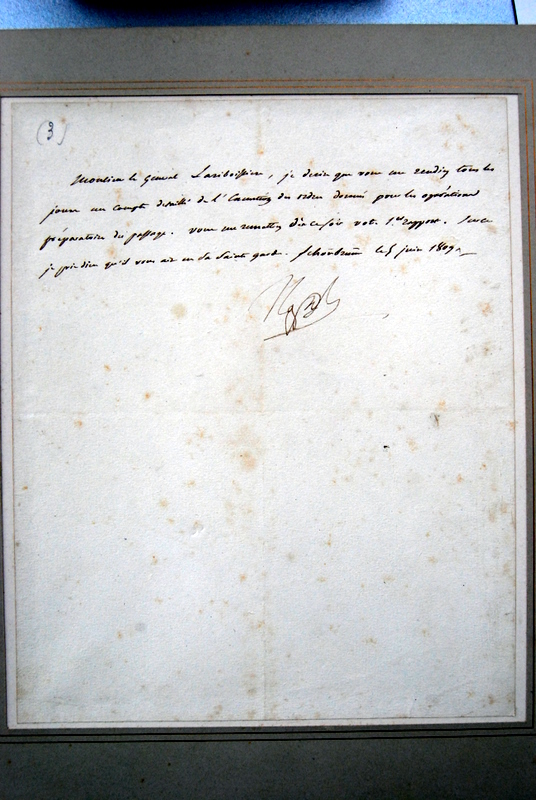 (3)
Monsieur le General Lariboissiere, je desire que vous me rendiez tous les
jours un compte detaillé de l'Execution des ordres donnés pour les opérations
préparatoires du passage. vous me remettrez d'ici ce soir votre 1.er rapport. Sur ce
je prie dieu qu'il vous ait en sa sainte garde. Schönbrunn le 5 juin 1809.